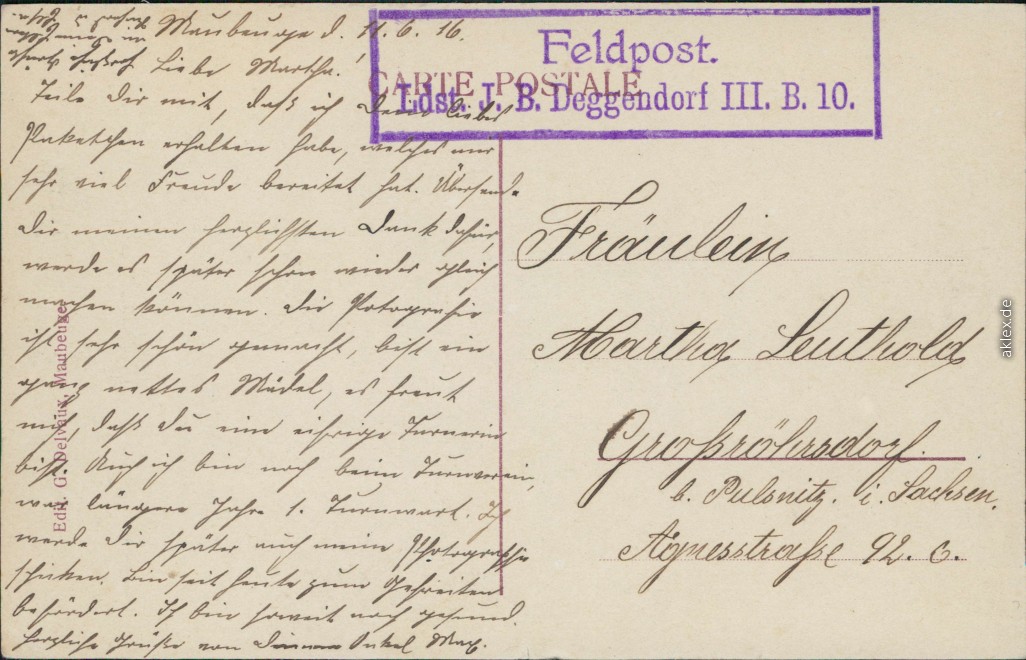 Maubeuge d. 11.6.16.
Liebe Martha!
Teile Dir mit, daß ich Dein liebes
Paketchen erhalten habe, welches mir
sehr viel Freude bereitet hat. Übersende
Dir meinen herzlichsten Dank dafür,
werde es später schon wieder gleich
machen können. Die Potografie
ist sehr schön gemacht, bist ein
ganz nettes Mädel, es freut
mich, daß Du eine eifrige Turnerin
bist. Auch ich bin noch beim Turnverein,
war längere Jahre 1. Turnwart. Ich
werde Dir später auch meine Photographie
schicken. Bin seit heute zum Gefreiten
befördert. Ich bin soweit noch gesund.
Herzliche Grüße von Onkel Max.
Feldpost.
CARTE POSTALE
Ldst. J. B. Deggendorf III. B. 10.
Fräulein
Martha Leuthold
Großröhrsdorf.
b. Pulsnitz. i. Sachsen.
Agnesstraße 92. c.
Edit. G. Delvaux, Maubeuge
aklex.de